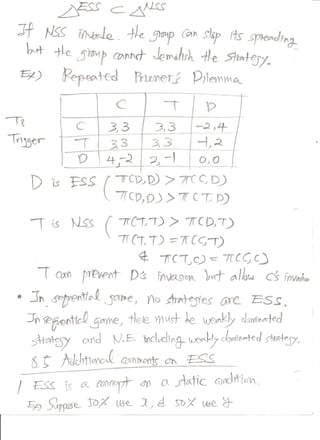 △ESS ⊂ △NSS
If NSS invade. the group can stop its spreading
but the group cannot demolish the strategy.
Ex) Repeated Prisoner's Dilemma
C T D
C 3,3 3,3 -2,4
T: Trigger T 3,3 3,3 -1,2
D 4,-2 2,-1 0,0
D is ESS ( π(D,D) > π(C,D)
π(D,D) > π(T,D)
T is NSS ( π(T,T) > π(D,T)
π(T,T) = π(C,T)
& π(T,C) = π(C,C)
T can prevent D's invasion but allow C's invasion
• In sequential game, no strategies are ESS.
In sequential game, there must be weakly dominated
strategy and N.E. including weakly dominated strategy.
§5 Additional comments on ESS
1. ESS is a concept on a static condition.
Ex) Suppose 50% use x, & 50% use y